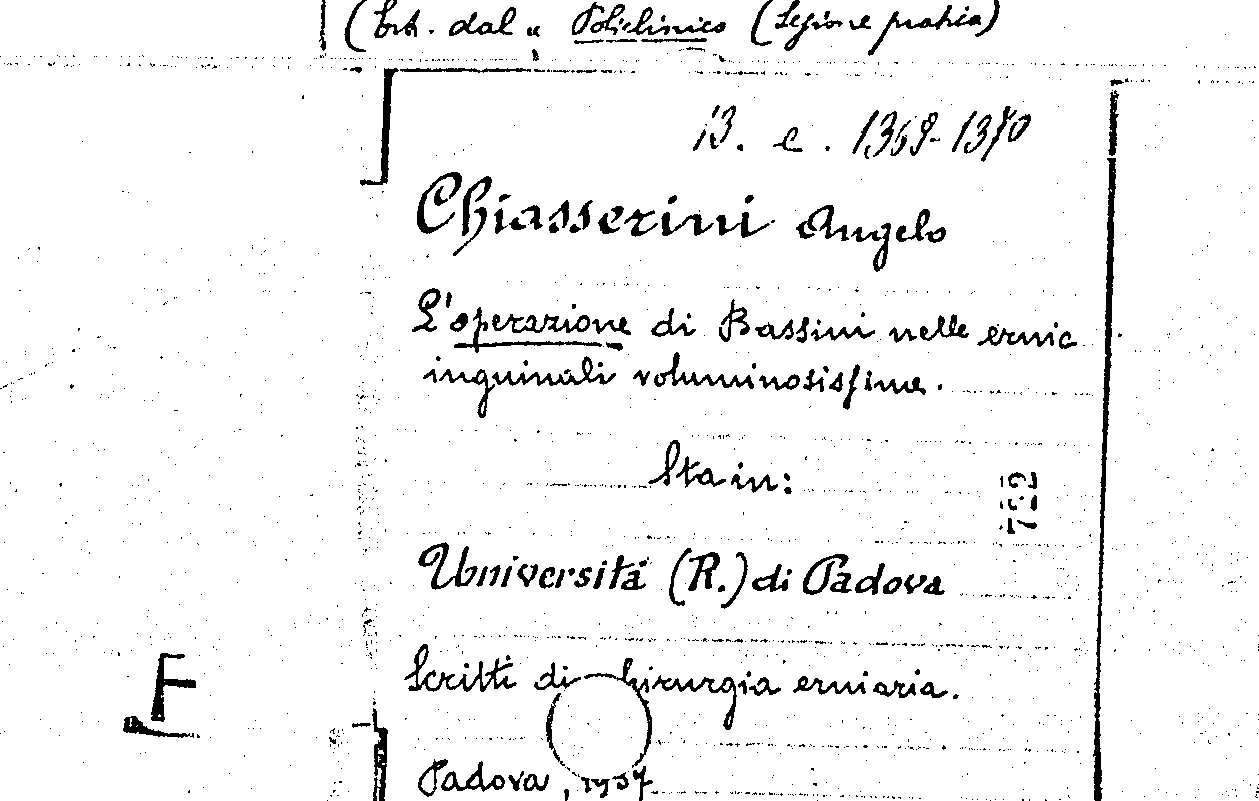 (Estr. dal " Policlinico (Sezione pratica)
13. c. 1369-1370
Chiasserini Angelo
L'operazione di Bassini nelle ernie
inguinali voluminosissime.
Sta in:
722
Università (R.) di Padova
Scritti di chirurgia erniaria.
F
Padova, 1937